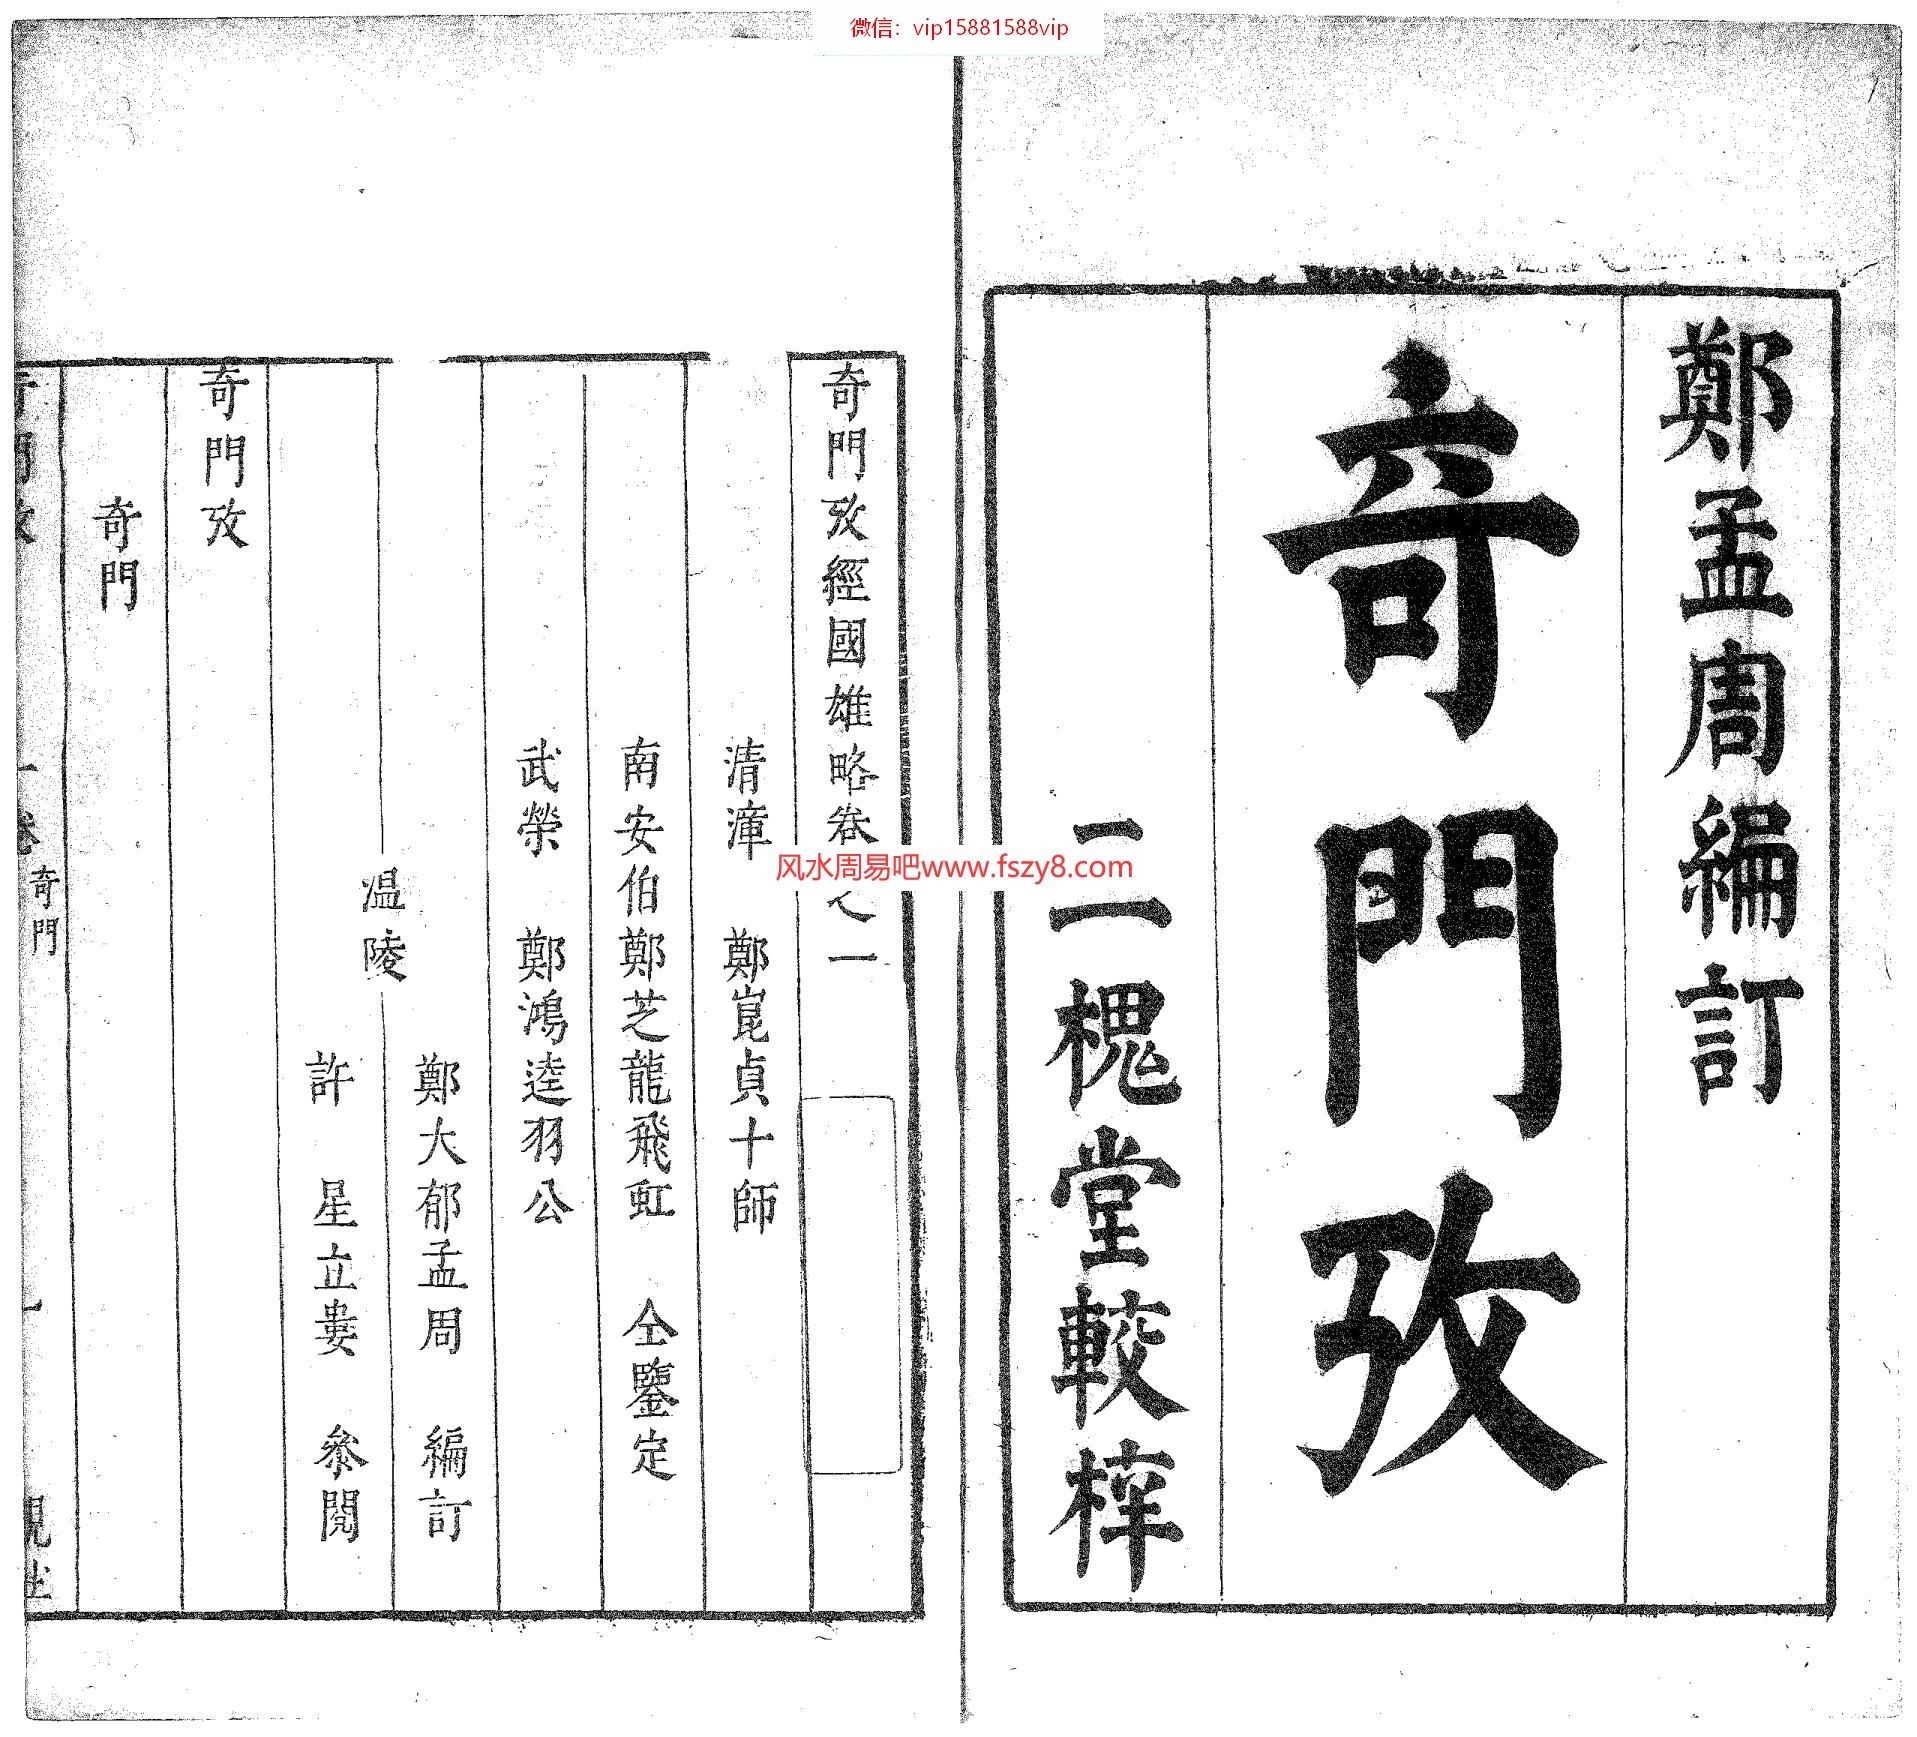 微信：vip15881588vip
鄭孟周編訂
奇門攷
二槐堂較梓
奇門攷經國雄略卷之一
清漳　鄭崑貞十師
南安伯鄭芝龍飛虹　仝鑒定
武榮　鄭鴻逵羽公
温陵
鄭大郁孟周　編訂
許　星立婁　叅閱
奇門攷
奇門
奇門攷　一卷　奇門　一　觀社
风水周易吧www.fszy8.com